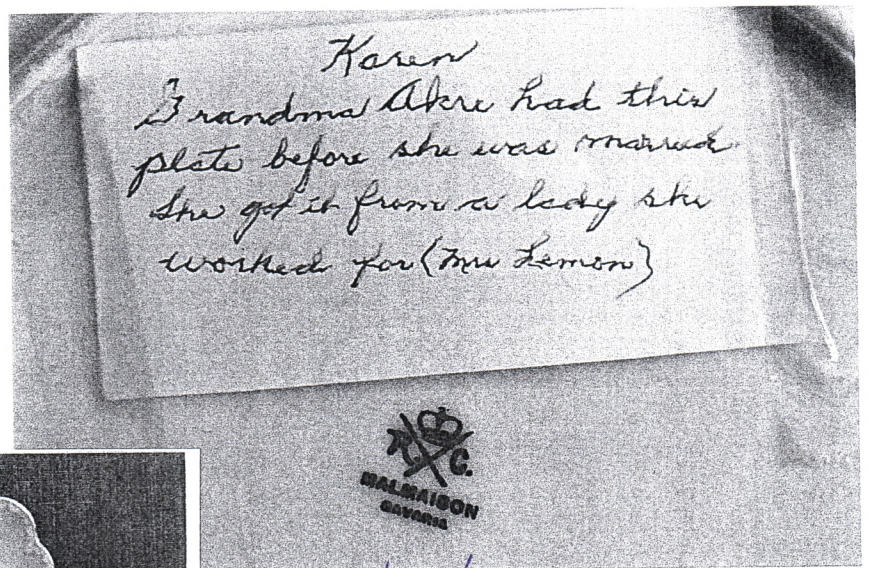 Karen
Grandma Akre had this
plate before she was married
She got it from a lady she
worked for (Mrs Lemon)
R. C.
MALMAISON
BAVARIA